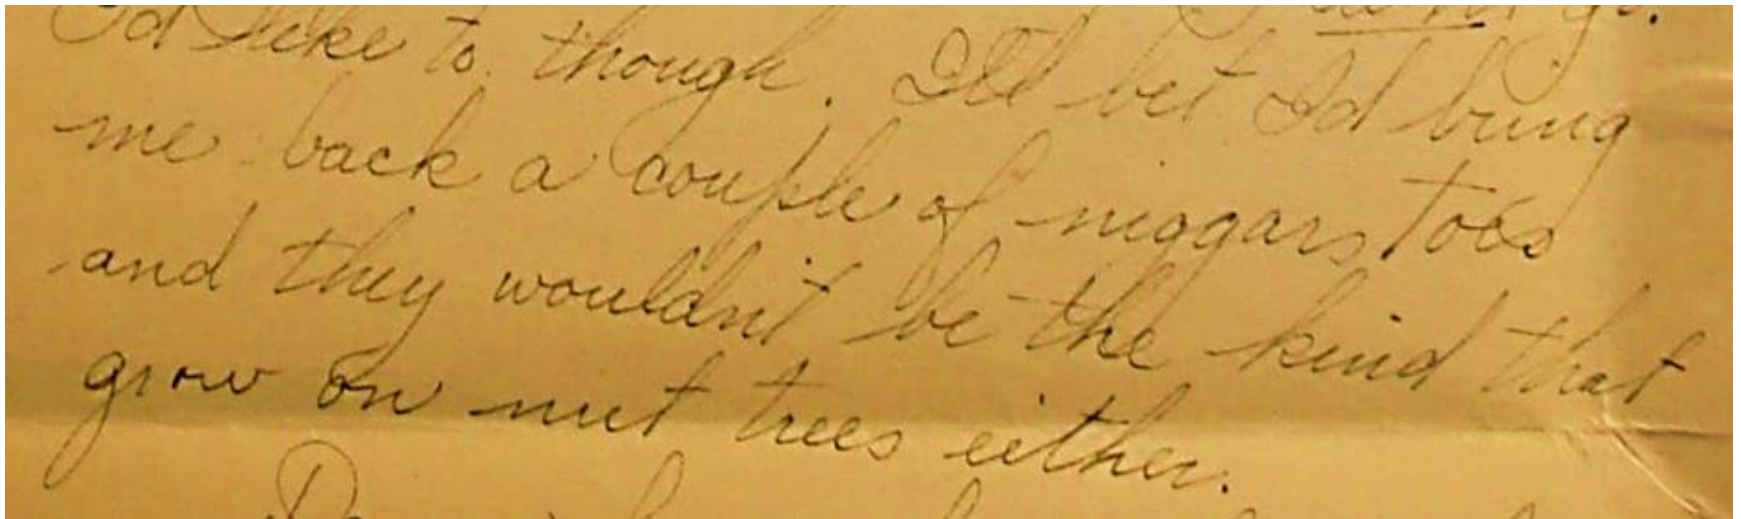 I'd like to though. I'll bet I'd bring
me back a couple of niggars toes
and they wouldn't be the kind that
grow on nut trees either.